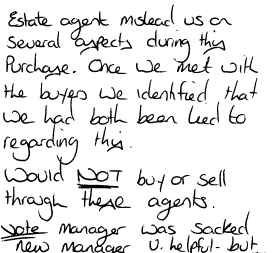 Estate agent mislead us on
several aspects during this
Purchase. Once we met with
the buyers we identified that
we had both been lied to
regarding this.
Would NOT buy or sell
through these agents.
Note Manager was sacked
new manager v. helpful - but